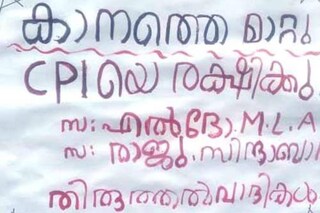 കാനത്തെ മാറ്റു
CPI യെ രക്ഷിക്കു.
സ: എൽദോ.M.L.A
സ: രാജു. സിന്ദാബാ
തിരുത്തൽവാദികൾ